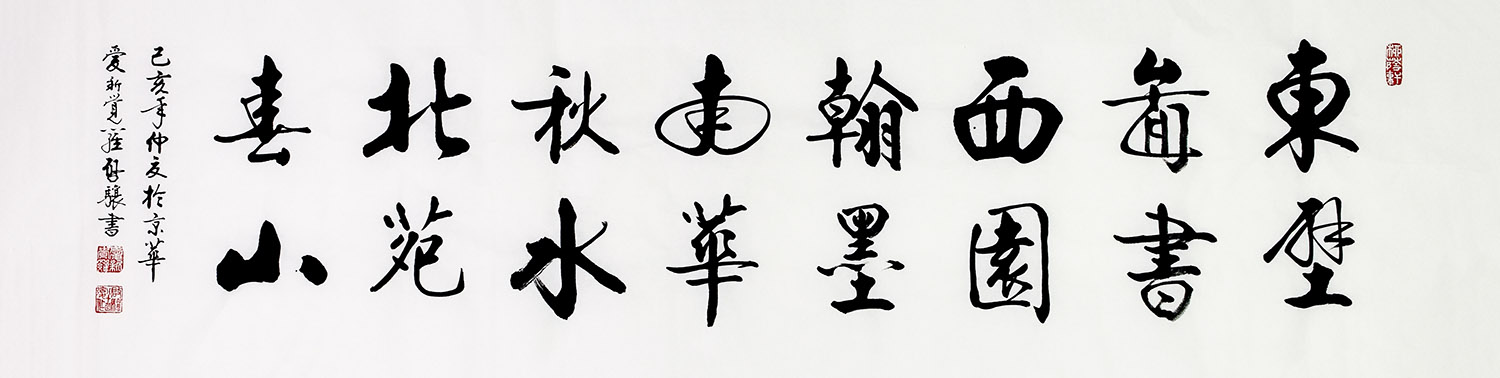 東壁
圖書
西園
翰墨
南華
秋水
北苑
春山
己亥年仲夏於京華
愛新覺羅啟驤書